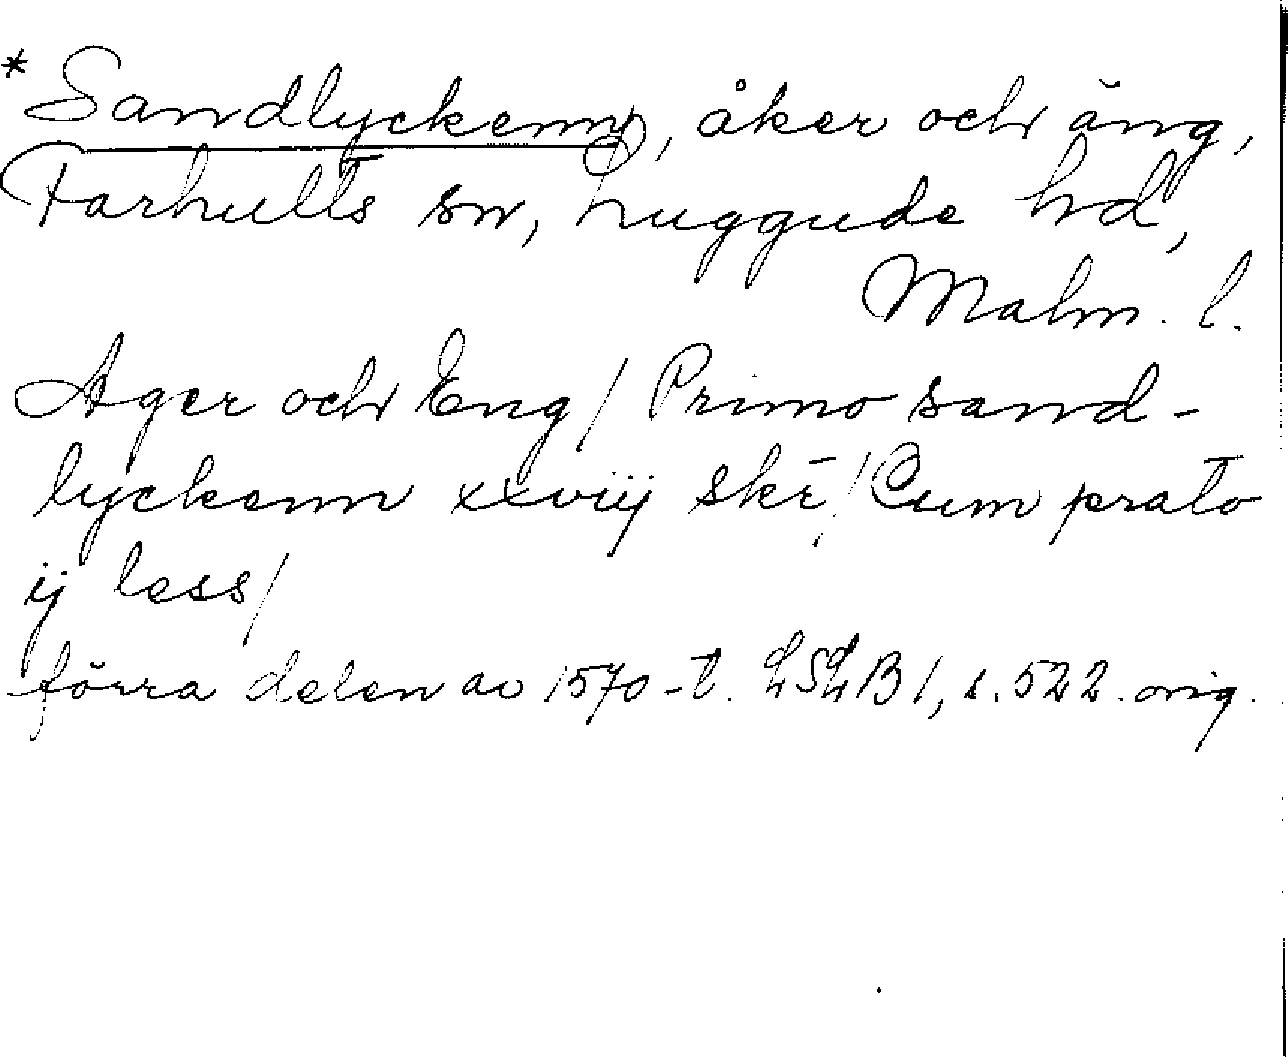 * Sandlyckenn, åker och äng,
Farhults sn, Luggude hd,
Malm. l.
Ager och Eng/ Primo sand-
lyckenn xxviij skē/ Cum prato
ij less/
förra delen av 1570-t. LSLB 1, s. 522. orig.